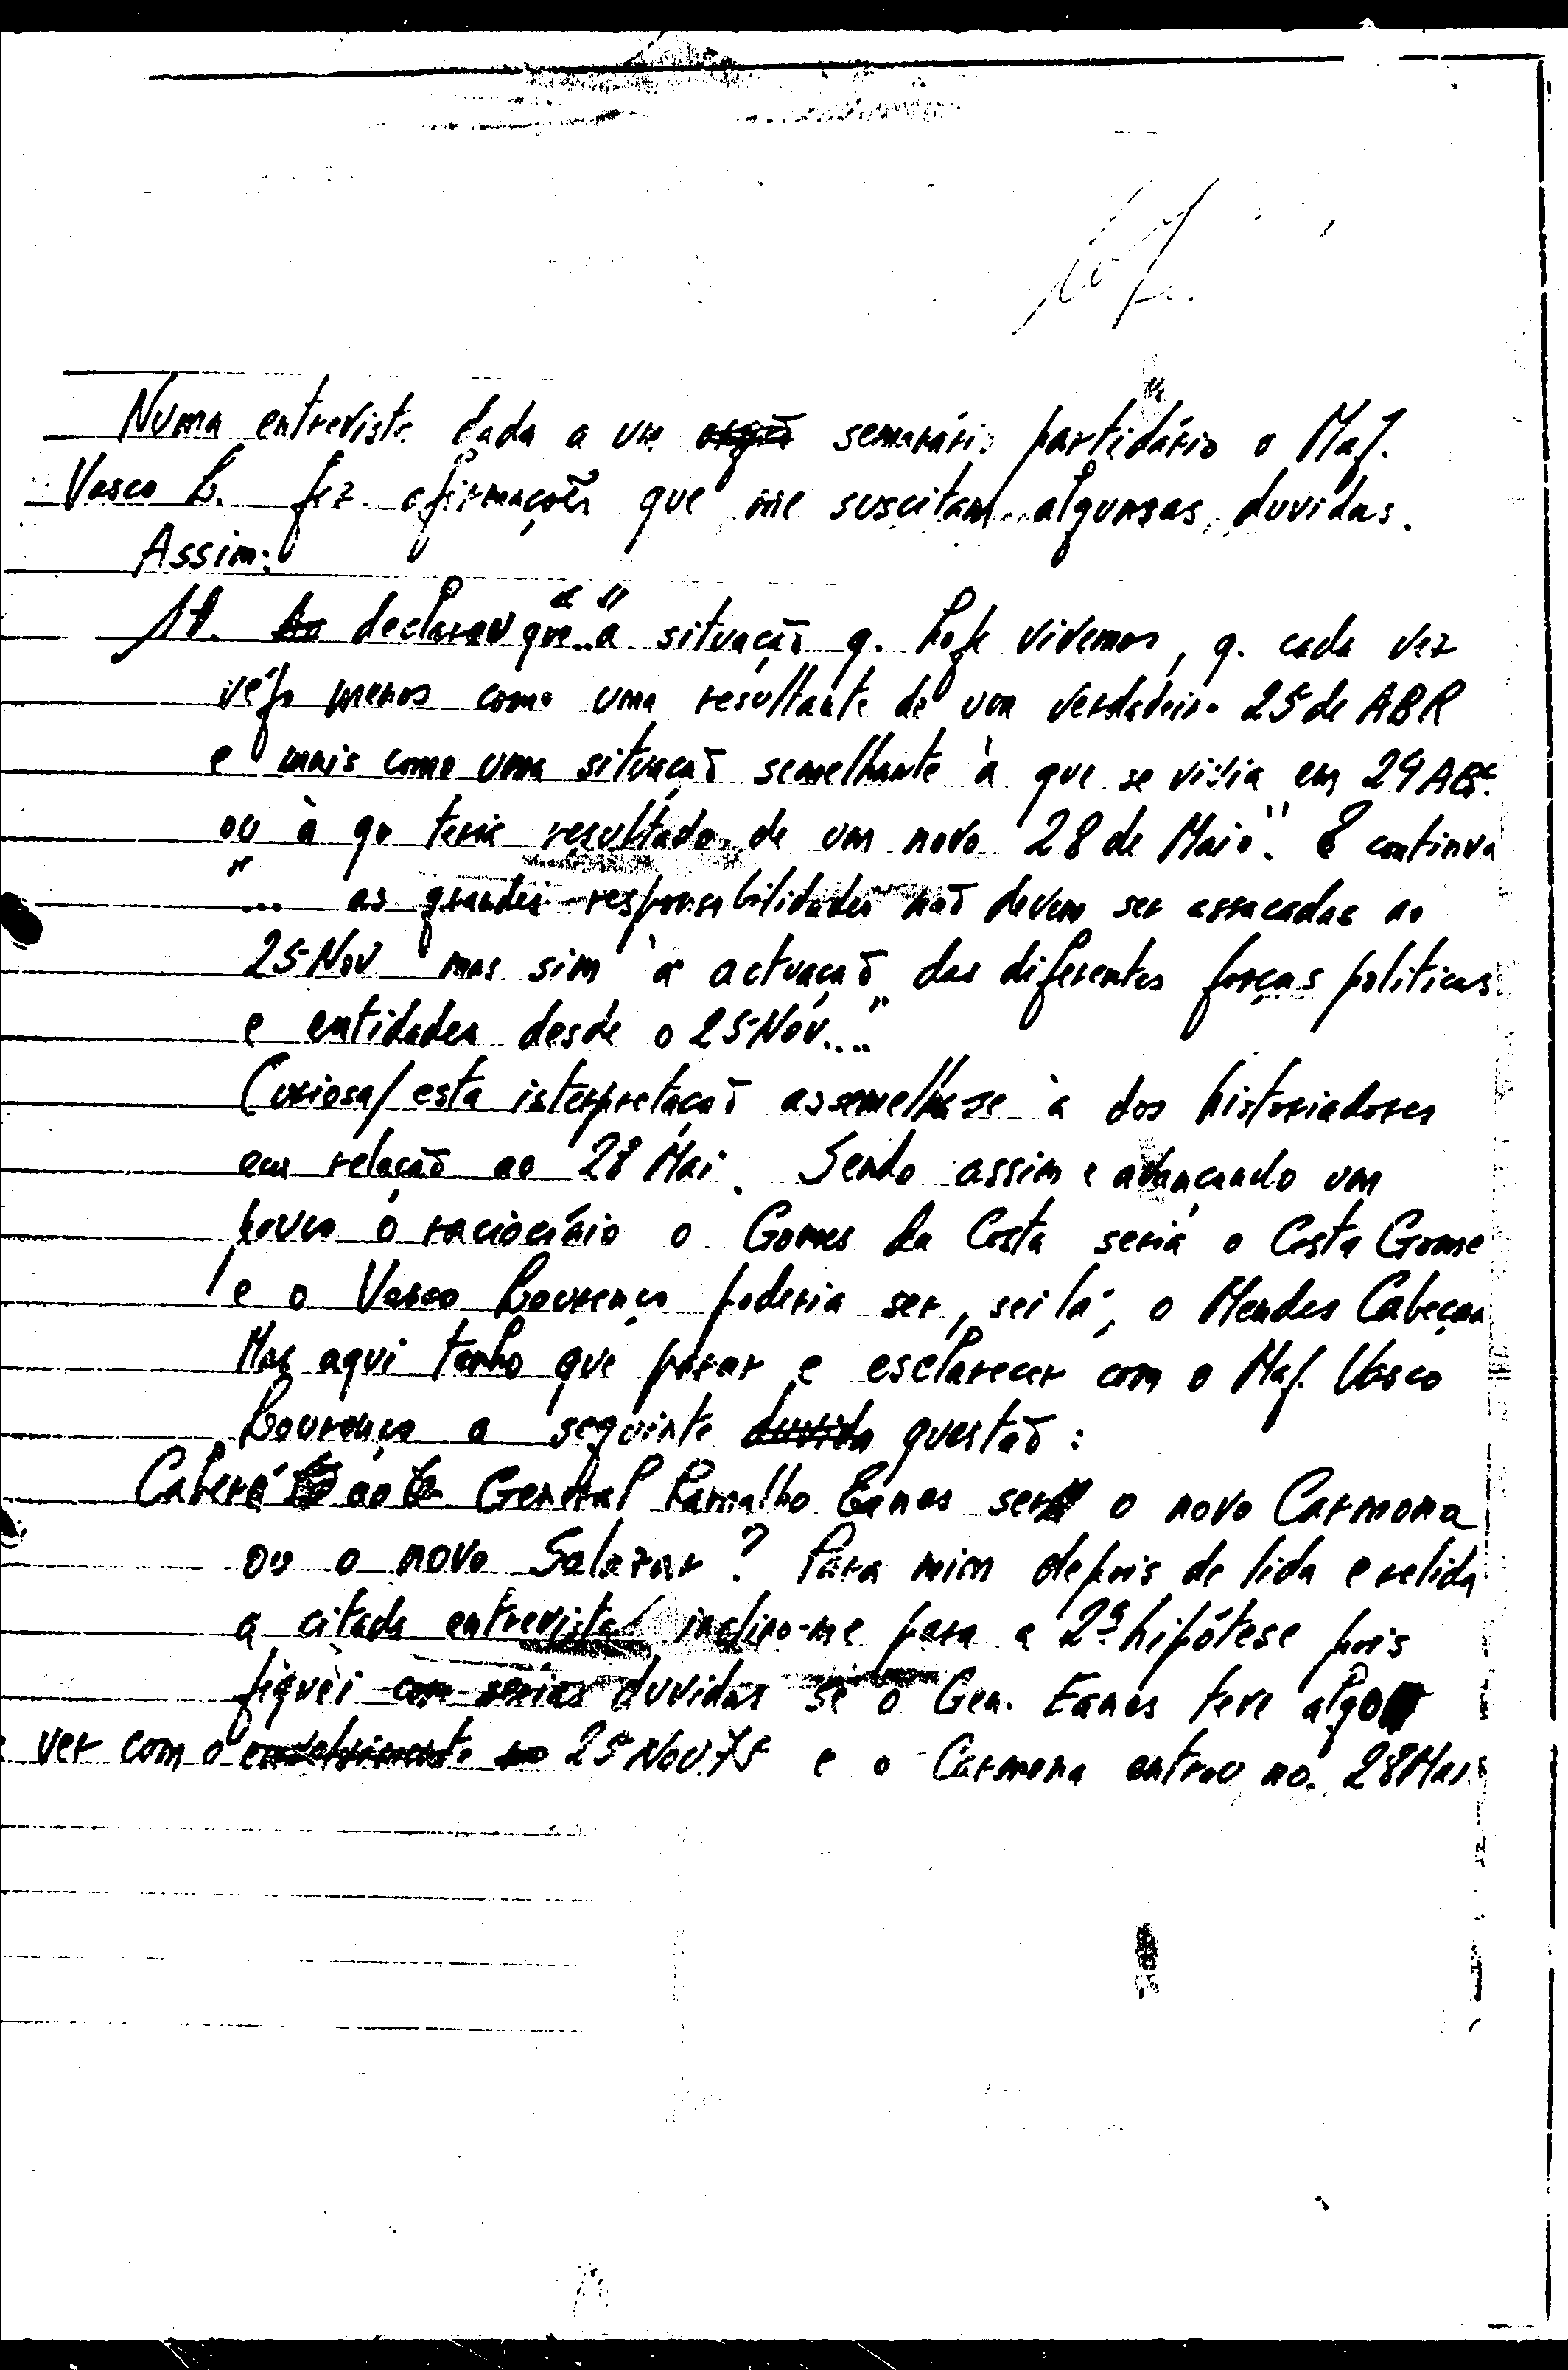 Numa entrevista dada a um semanário partidário o Maj.
Vasco L. fez afirmações que me suscitam algumas duvidas.
Assim:
1º. declarou que "..a situação q. hoje vivemos, q. cada vez
vejo menos como uma resultante de um verdadeiro 25 de ABR
e mais como uma situação semelhante à que se vivia em 24 ABR
ou à qu teria resultado de um novo 28 de Maio". E continua
"... as grandes responsabilidades não devem ser assacadas ao
25 Nov mas sim à actuação das diferentes forças politicas
e entidades desde o 25 Nov..."
Curiosa/ esta interpretação assemelha-se à dos historiadores
em relação ao 28 Mai. Sendo assim e avançando um
pouco o raciocínio o Gomes da Costa seria o Costa Gome
e o Vasco Lourenço poderia ser, sei lá, o Mendes Cabeçan
Mas aqui tenho que parar e esclarecer com o Maj. Vasco
Lourenço a seguinte duvida questão:
Caberá ao General Ramalho Eanes ser o novo Carmona
ou o novo Salazar? Para mim depois de lida e relida
a citada entrevista inclino-me para a 2ª hipótese pois
fiquei com serias duvidas se o Gen. Eanes teve algo
ver com o envolvimento no 25 Nov 75 e o Carmona entrou no 28 Mai